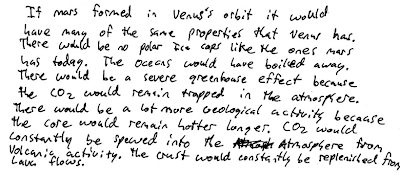 If mars formed in Venus's orbit it would
have many of the same properties that Venus has.
There would be no polar Ice caps like the ones mars
has today. The oceans would have boiled away.
There would be a severe greenhouse effect because
the CO2 would remain trapped in the atmosphere.
There would be a lot more Geological activity because
the core would remain hotter longer. CO2 would
constantly be spewed into the Atmosphere from
Volcanic activity. The crust would constantly be replenished from
Lava flows.